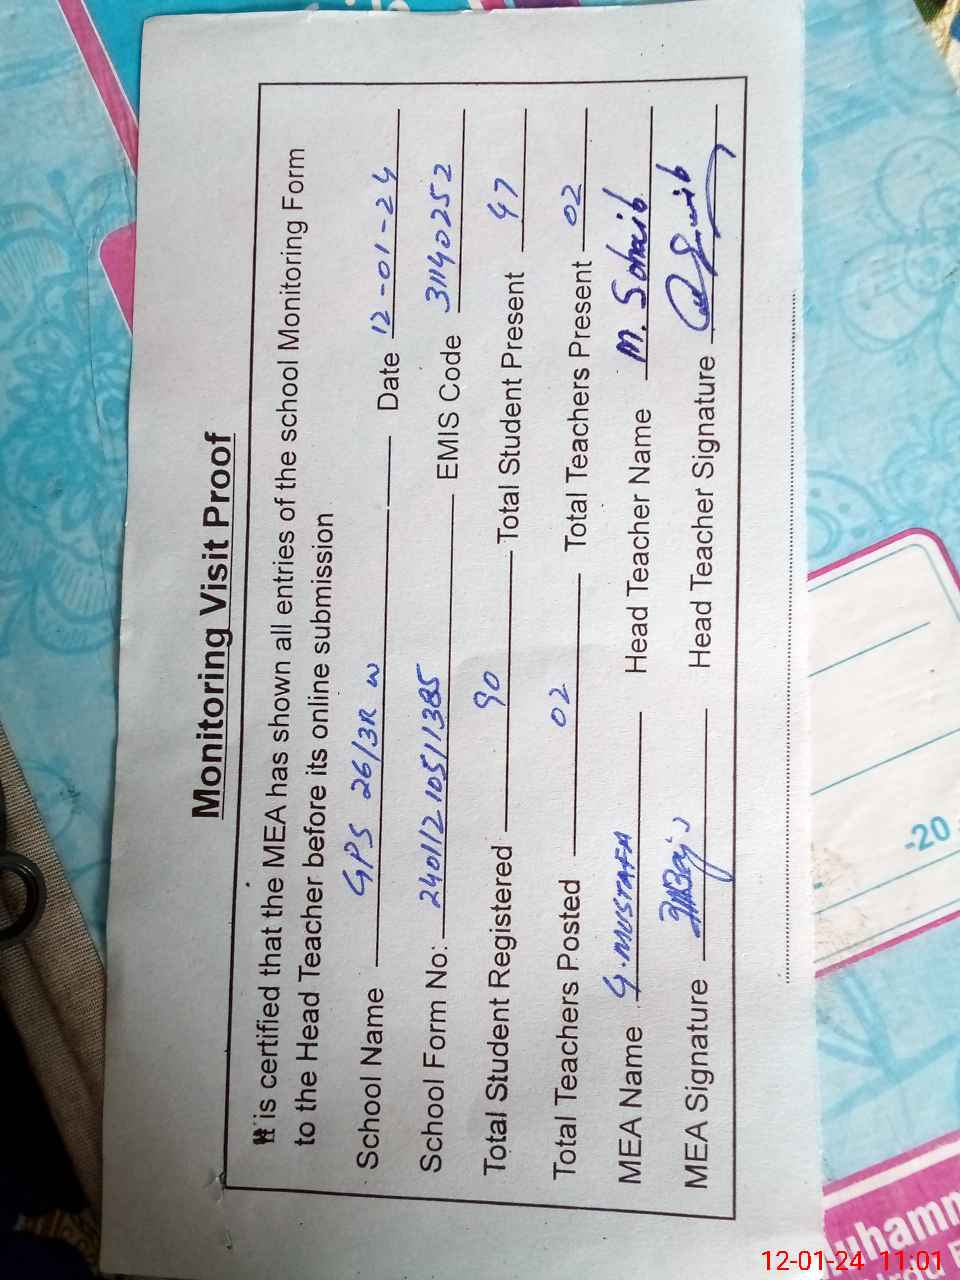 Monitoring Visit Proof
It is certified that the MEA has shown all entries of the school Monitoring Form
to the Head Teacher before its online submission
School Name GPS 26/3R W Date 12-01-24
School Form No: 240112 10511385 EMIS Code 31140252
Total Student Registered 90 Total Student Present 47
Total Teachers Posted 02 Total Teachers Present 02
MEA Name G.MUSTAFA Head Teacher Name M. Sohaib
MEA Signature Head Teacher Signature
-20
uhamm
12-01-24 11:01